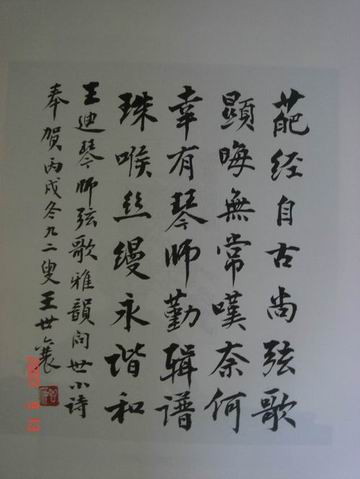 葩经自古尚弦歌
顯晦無常嘆奈何
幸有琴师勤辑谱
珠喉丝缦永谐和
王迪琴师弦歌雅韻问世小诗
奉贺丙戌冬九二叟王世襄